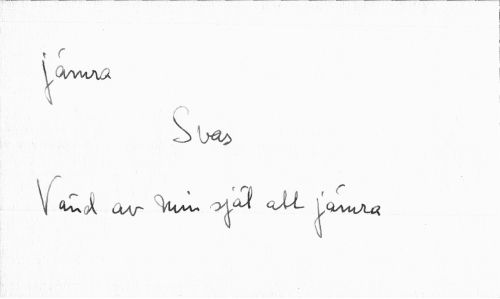 jämra
Svas
Vänd av min själ att jämra